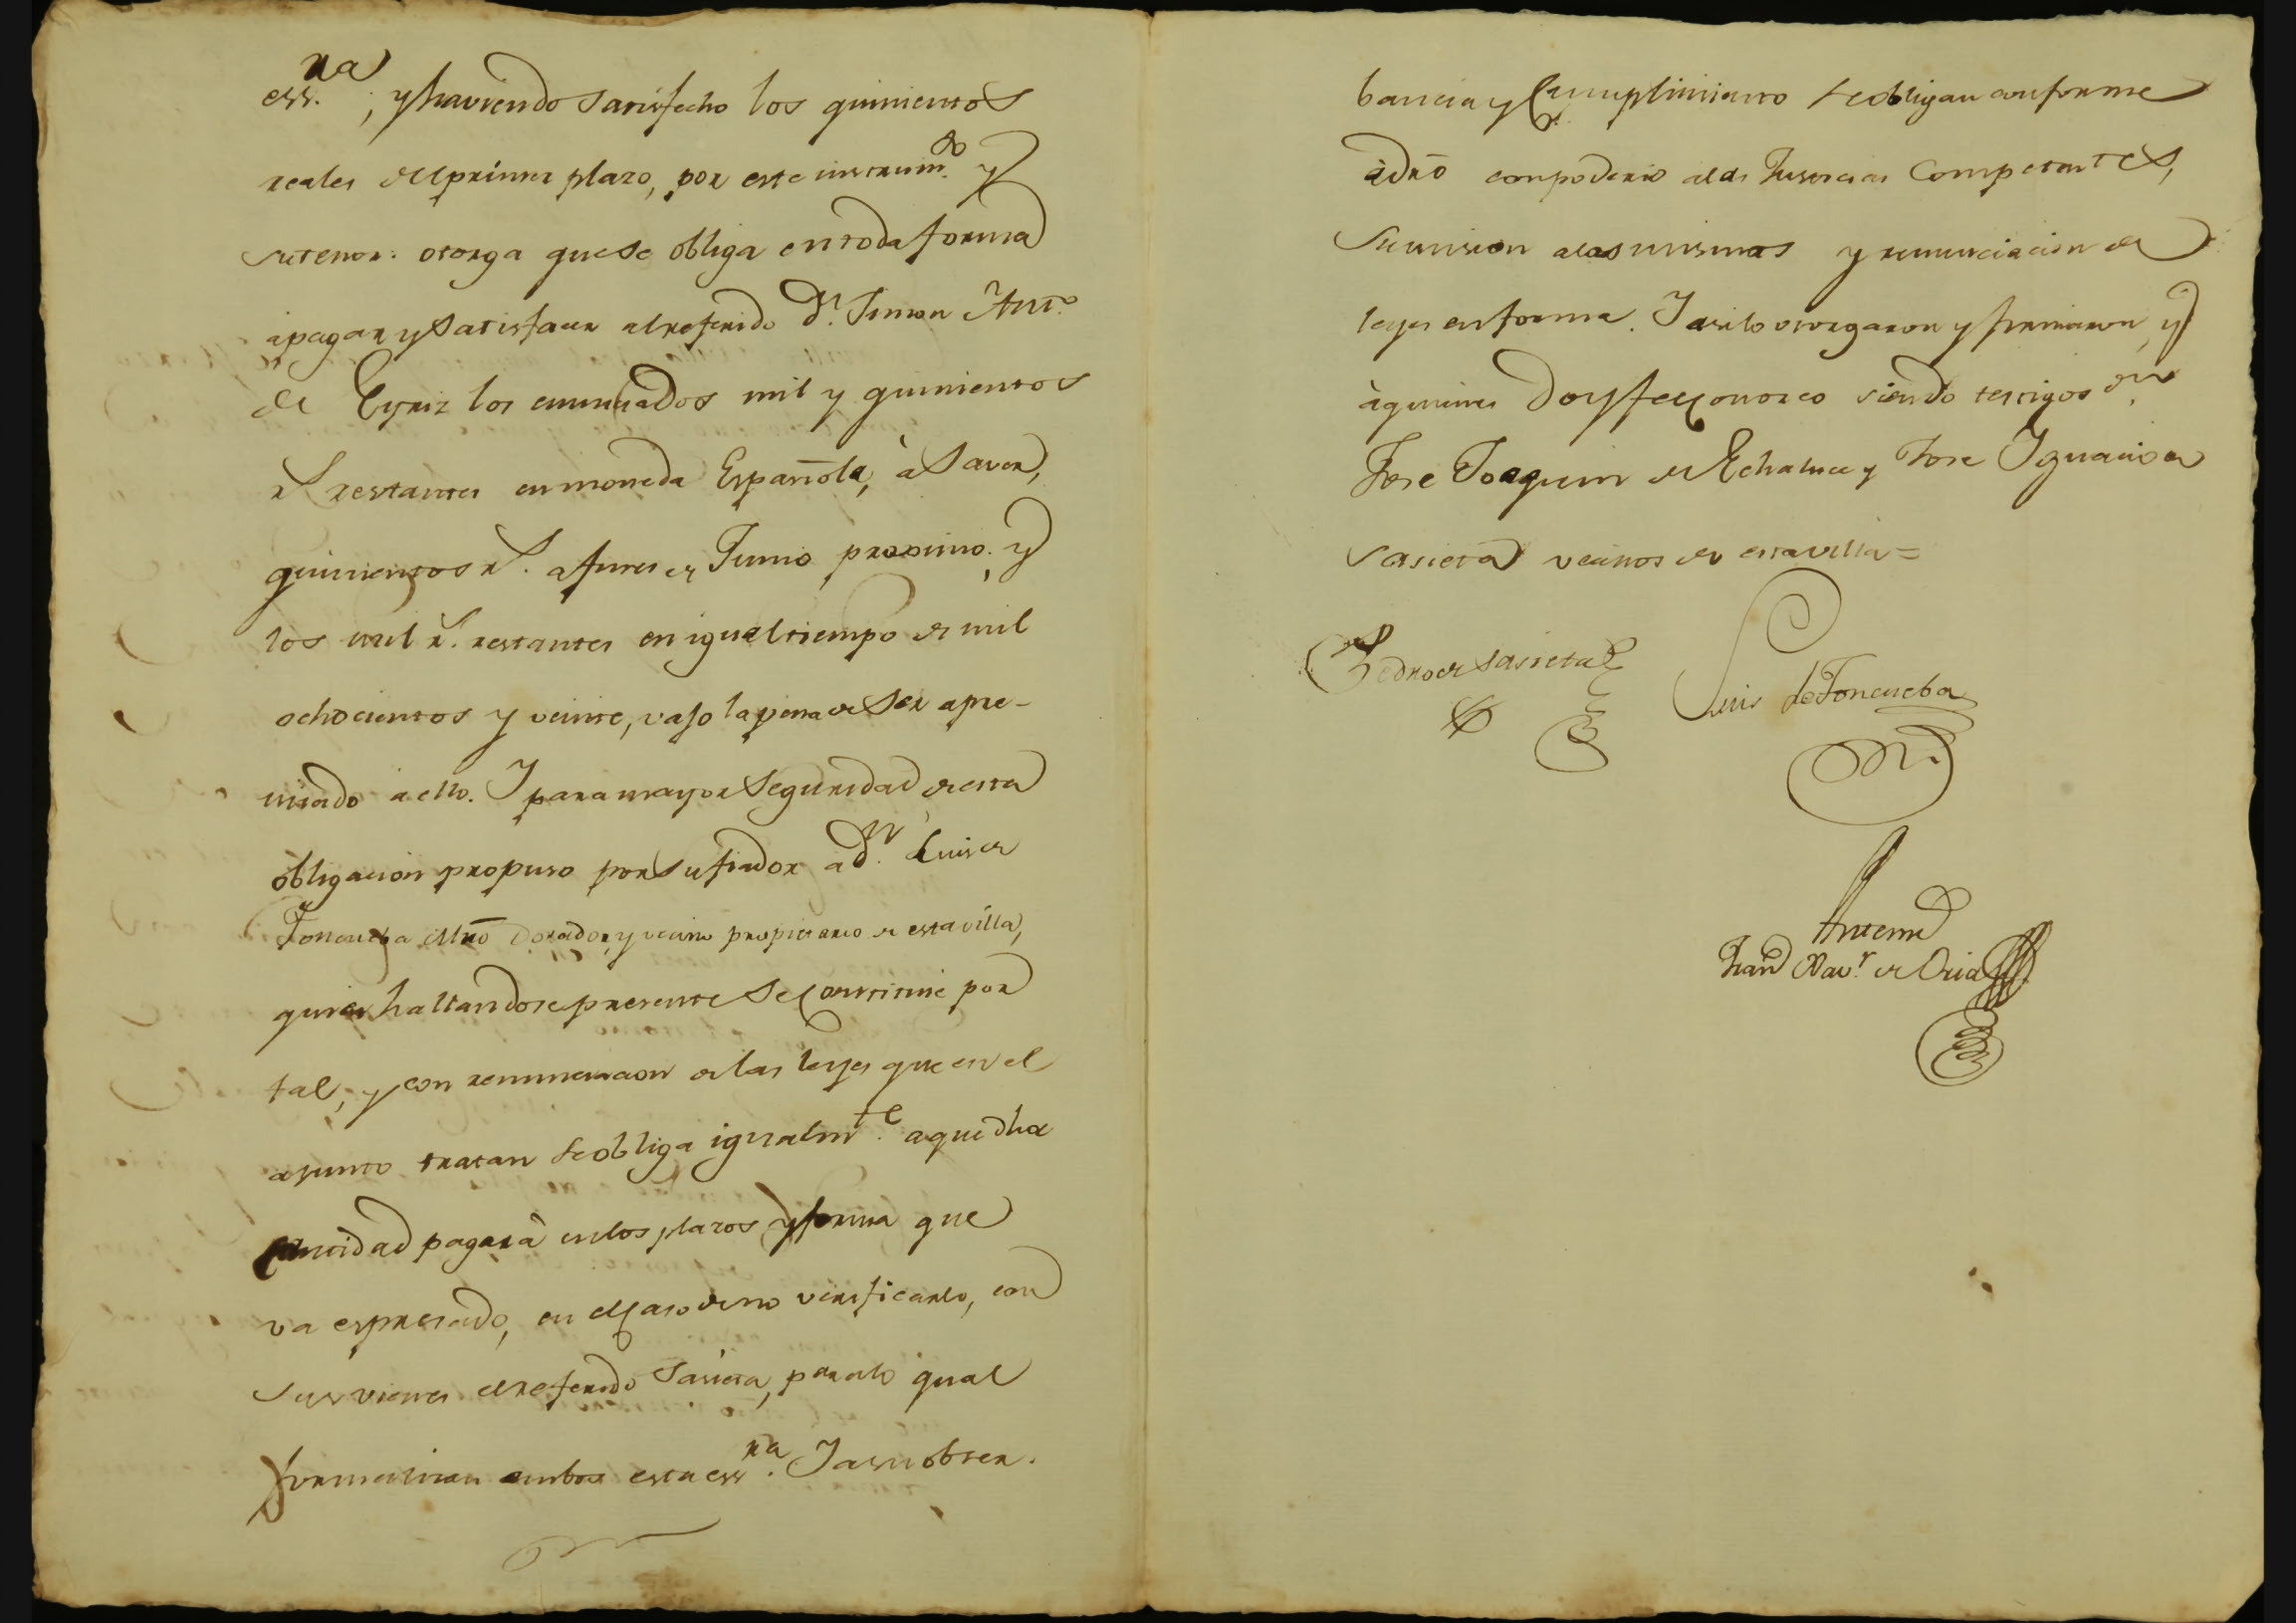 ess.ra; y haviendo satisfecho los quinientos
reales del primer plazo, por este instrum.to y
su tenor: otorga que se obliga en toda forma
à pagar y satisfacer al referido d.n Simon Ant.o
de Eyriz los enunciados mil y quinientos
r.s restantes en moneda Española, à saver,
quinientos r.s a fines de Junio proximo; y
los mil r.s restantes en igual tiempo de mil
ochocientos y veinte, vajo la pena de ser apre-
miado a ello. Y para mayor seguridad de esta
obligacion propuso por su fiador a d.n Luis de
Foncueba Mrō Dorador, y vecino propietario de esta villa,
quien hallandose presente se constituie por
tal, y con renunciacion de las leyes que en el
asunto tratan se obliga igualm.te a que dha
cantidad pagarà en los plazos y forma que
va espresado, en el caso de no verificarlo, con
sus vienes el referido Sasieta, para lo qual
formalizan ambos esta ess.ra. Y a su obser.
bancia y cumplimiento se obligan conforme
à dro con poderio a las Justicias Competentes,
sumision a las mismas y renunciacion de
leyes en forma. Y asi lo otorgaron y firmaron, y
à quienes doy fe conozco siendo testigos d.n
Jose Joaquin de Echaluce y Jose Ignacio de
Sasieta vecinos de esta villa =
Pedro de Sasieta
Luis de Foncueba
Antemi
Fran.co Xav.r de Oria